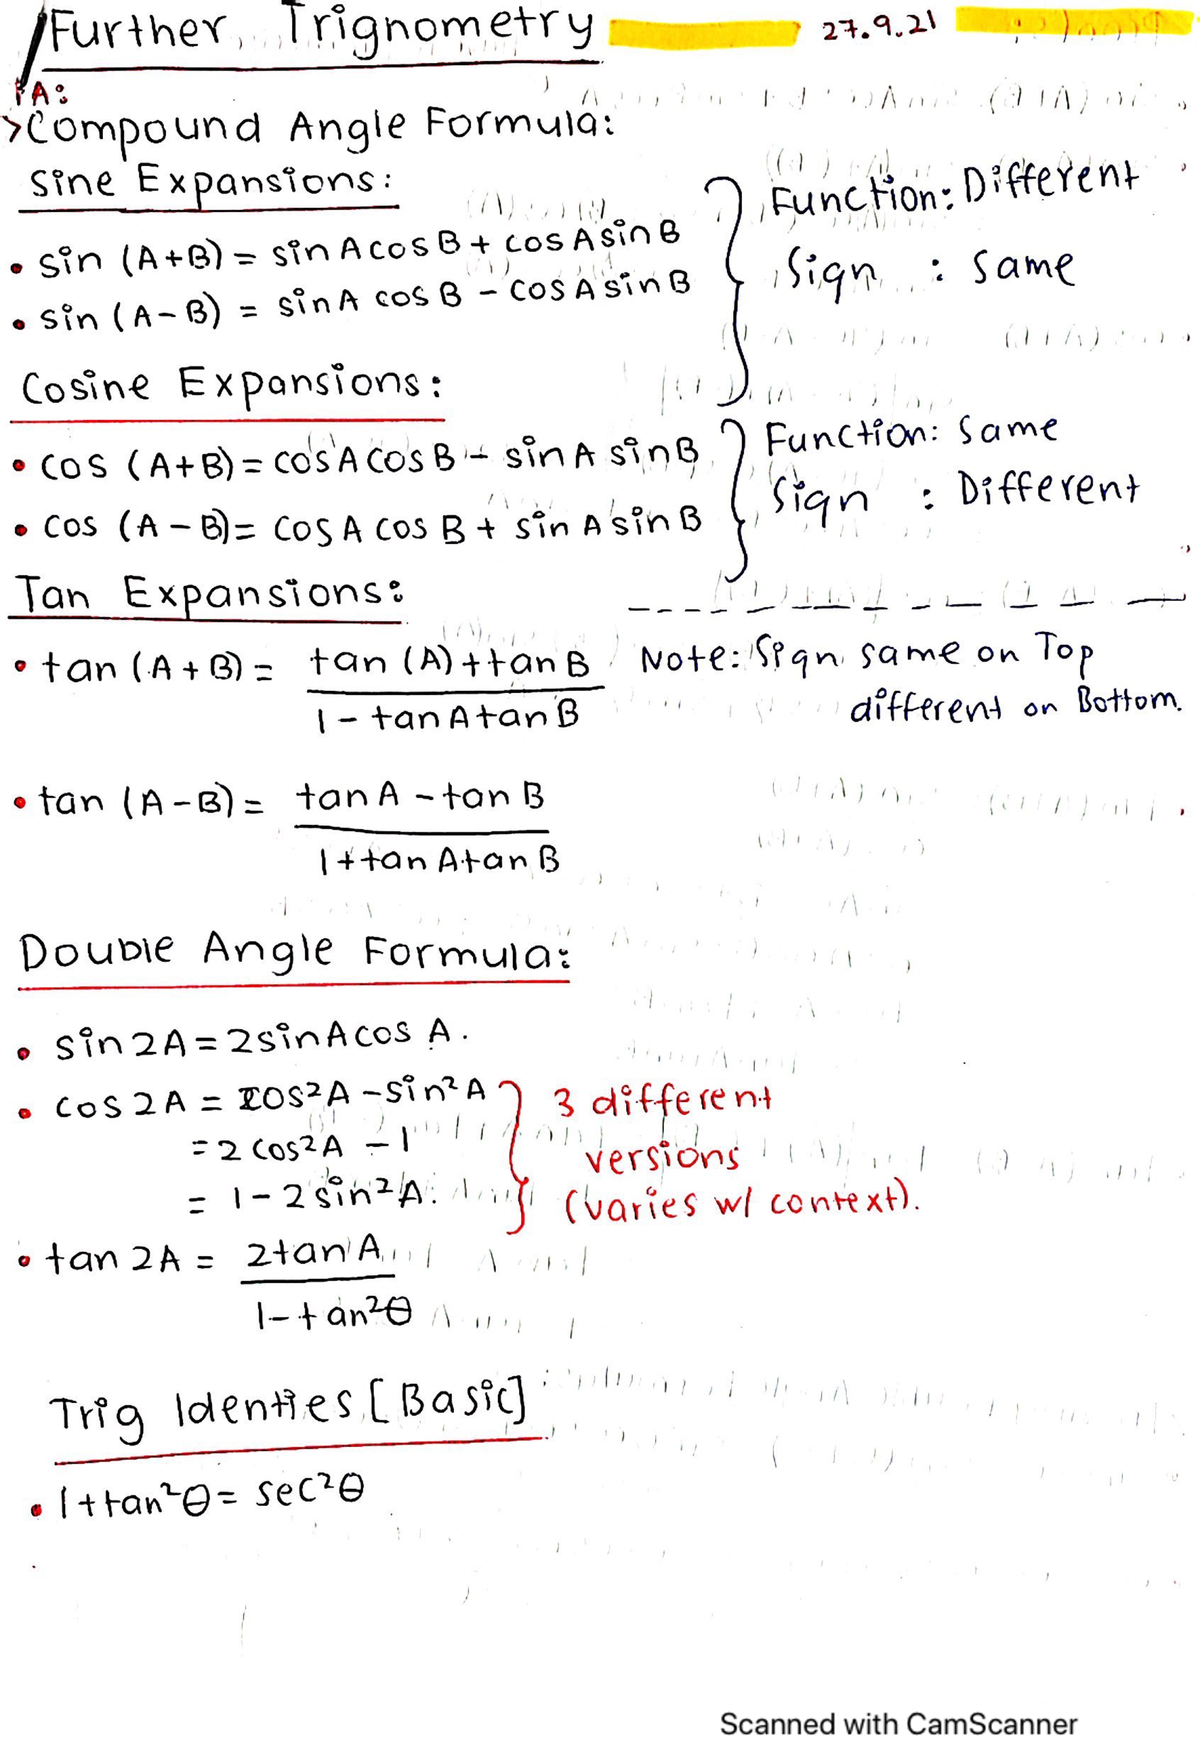 Further Trignometry 27.9.21
PA:
>Compound Angle Formula:
Sine Expansions:
• sin (A+B) = sin A cos B + cos A sin B
• sin (A-B) = sin A cos B - cos A sin B
Function: Different
Sign : Same
Cosine Expansions:
• cos (A+B) = cos A cos B - sin A sin B
• cos (A-B) = cos A cos B + sin A sin B
Function: Same
Sign : Different
Tan Expansions:
• tan (A+B) = tan (A) + tan B
1 - tan A tan B
Note: Sign same on Top
different on Bottom.
• tan (A-B) = tan A - tan B
1 + tan A tan B
Double Angle Formula:
• sin 2A = 2 sin A cos A.
• cos 2A = cos²A - sin²A
= 2 cos²A - 1
= 1 - 2 sin²A.
3 different
versions
(varies w/ context).
• tan 2A = 2 tan A
1 - tan²θ
Trig Identies [Basic]
• 1 + tan²θ = sec²θ
Scanned with CamScanner